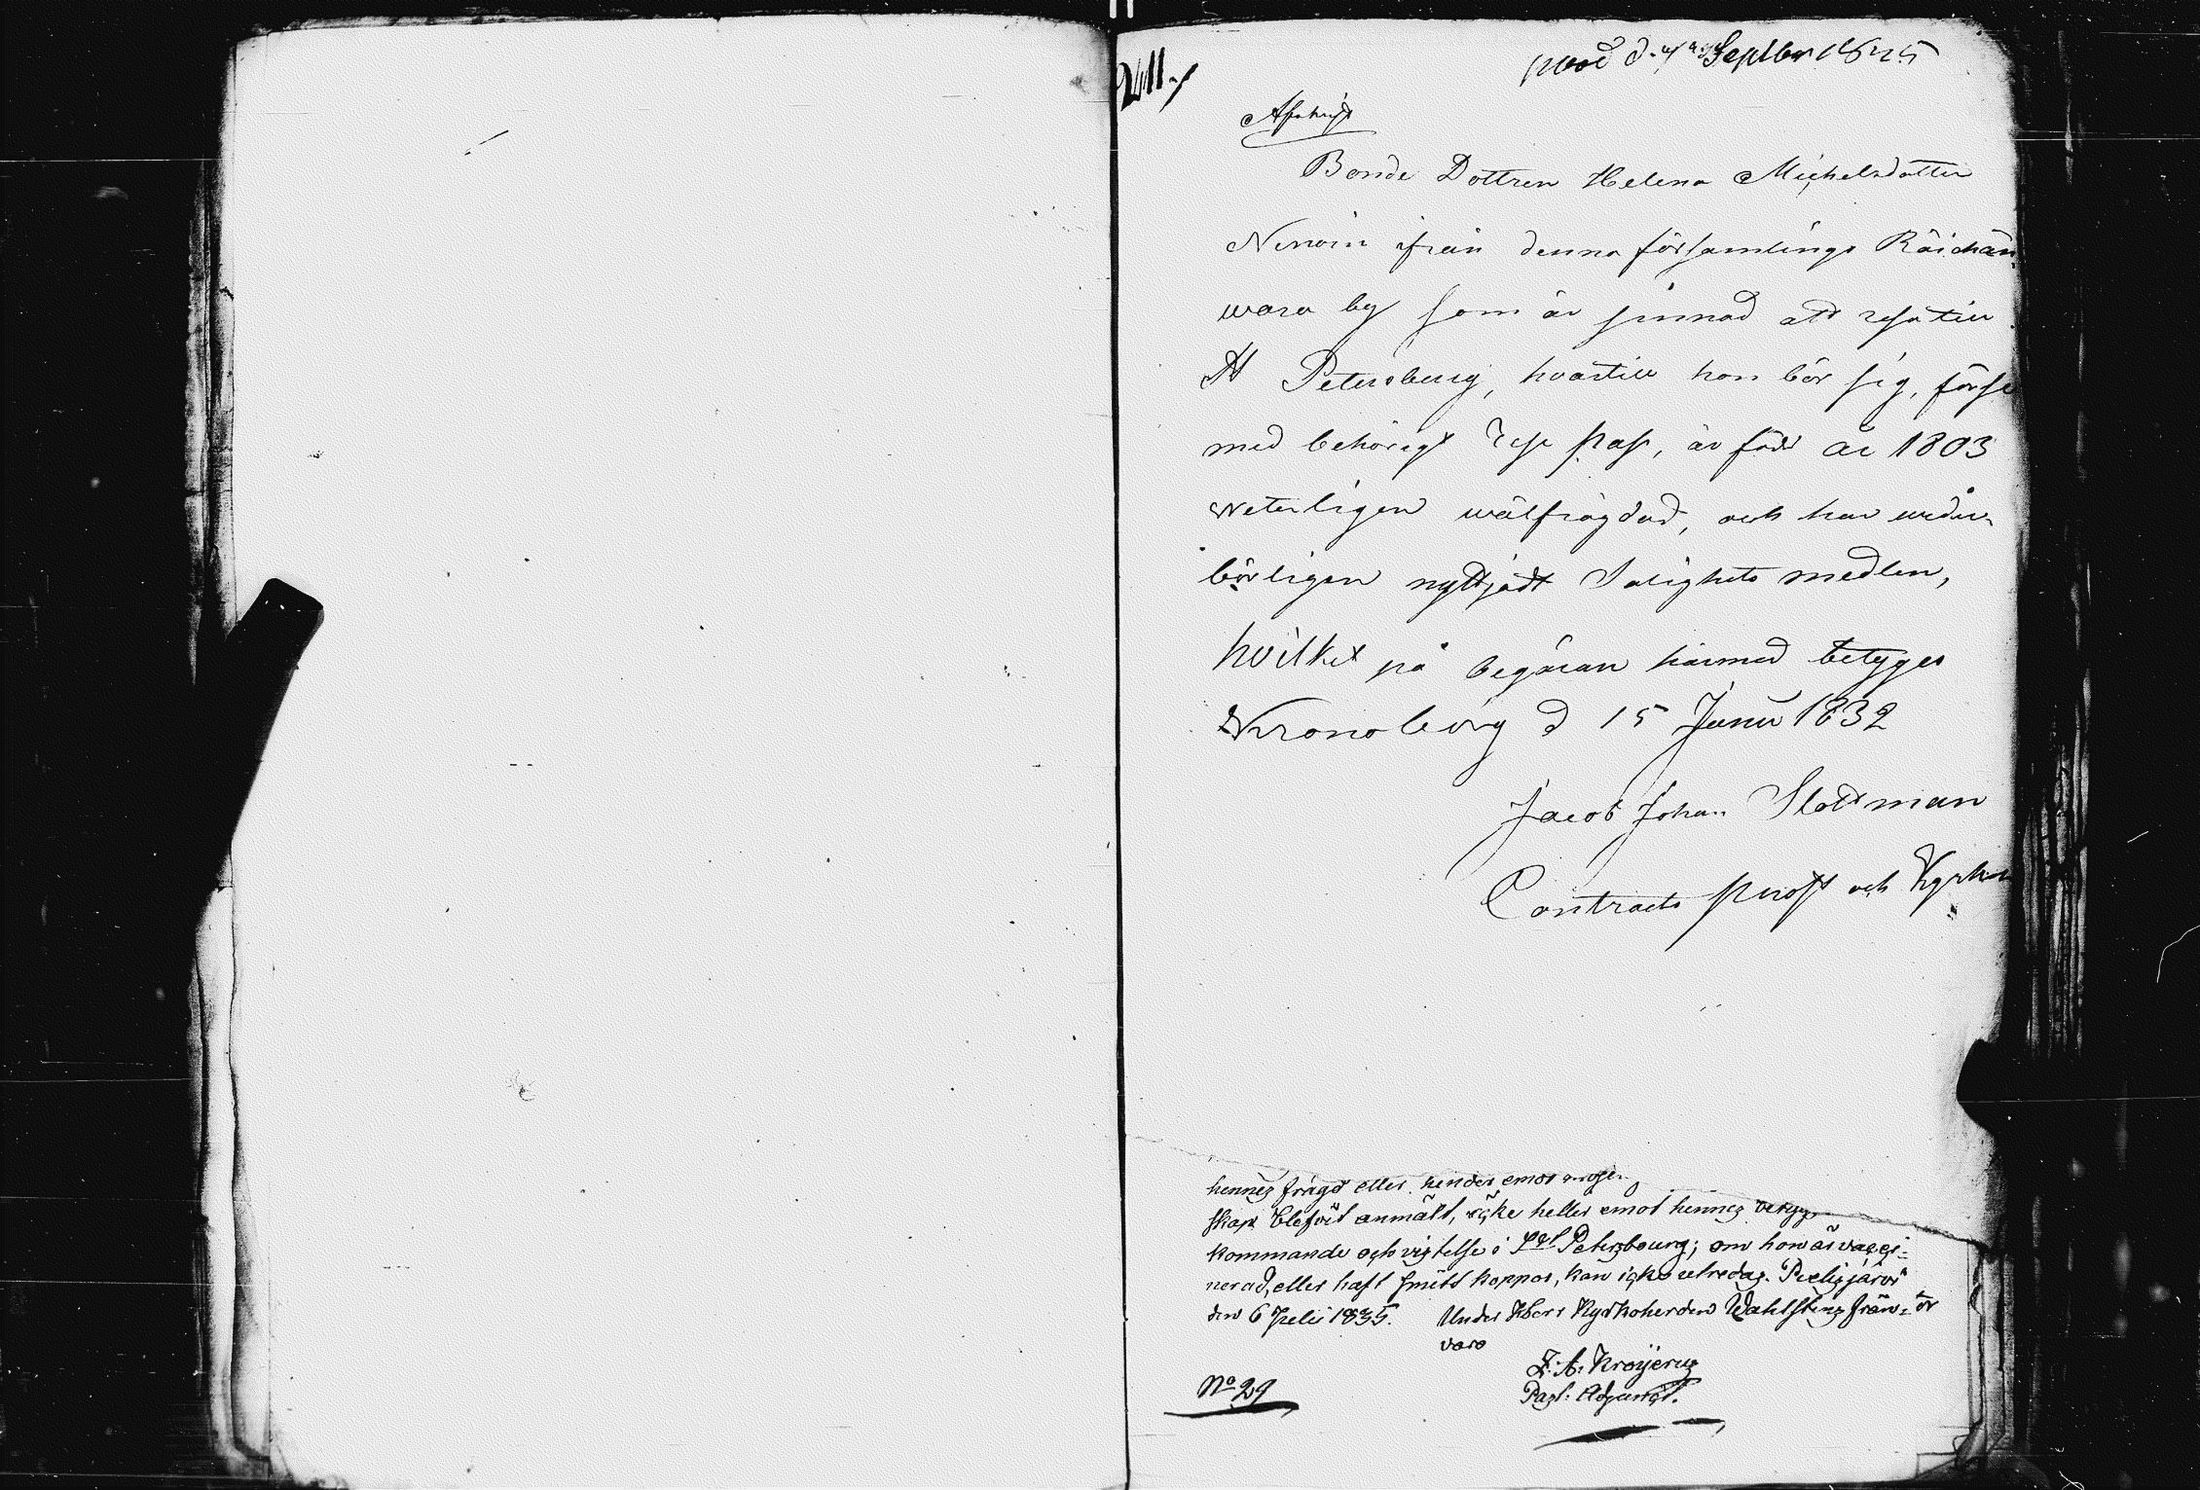 d. 4 Septbr 1835
Afskrift
Bonde Dottren Helena Michelsdotter
ifrån denna församlings Räichän-
wara by som är sinnad att resa till
St Petersburg, hvartill hon bör sig, förse
med behörigt rese pass, är född år 1803
veterligen wälfrägdad, och har veder-
börligen nyttjadt Salighets medlen,
hvilket på begäran härmed betyges
Kronoborg d 15 Junii 1832
Jacob Johan Slottman
Contracts prost och Kyrkoh
hennes frägd eller hinder emot
skap blefvit anmält, icke heller emot hennes
kommande och vistelse i Petersbourg; om hon är vacci-
nerad, eller haft små koppor, kan icke utredas. Pielisjärvi
den 6 Julii 1835. Under Herr Kyrkoherden Wahlstens från-
varo
Z. A. Krogerus
Past. Adjunct.
No 29